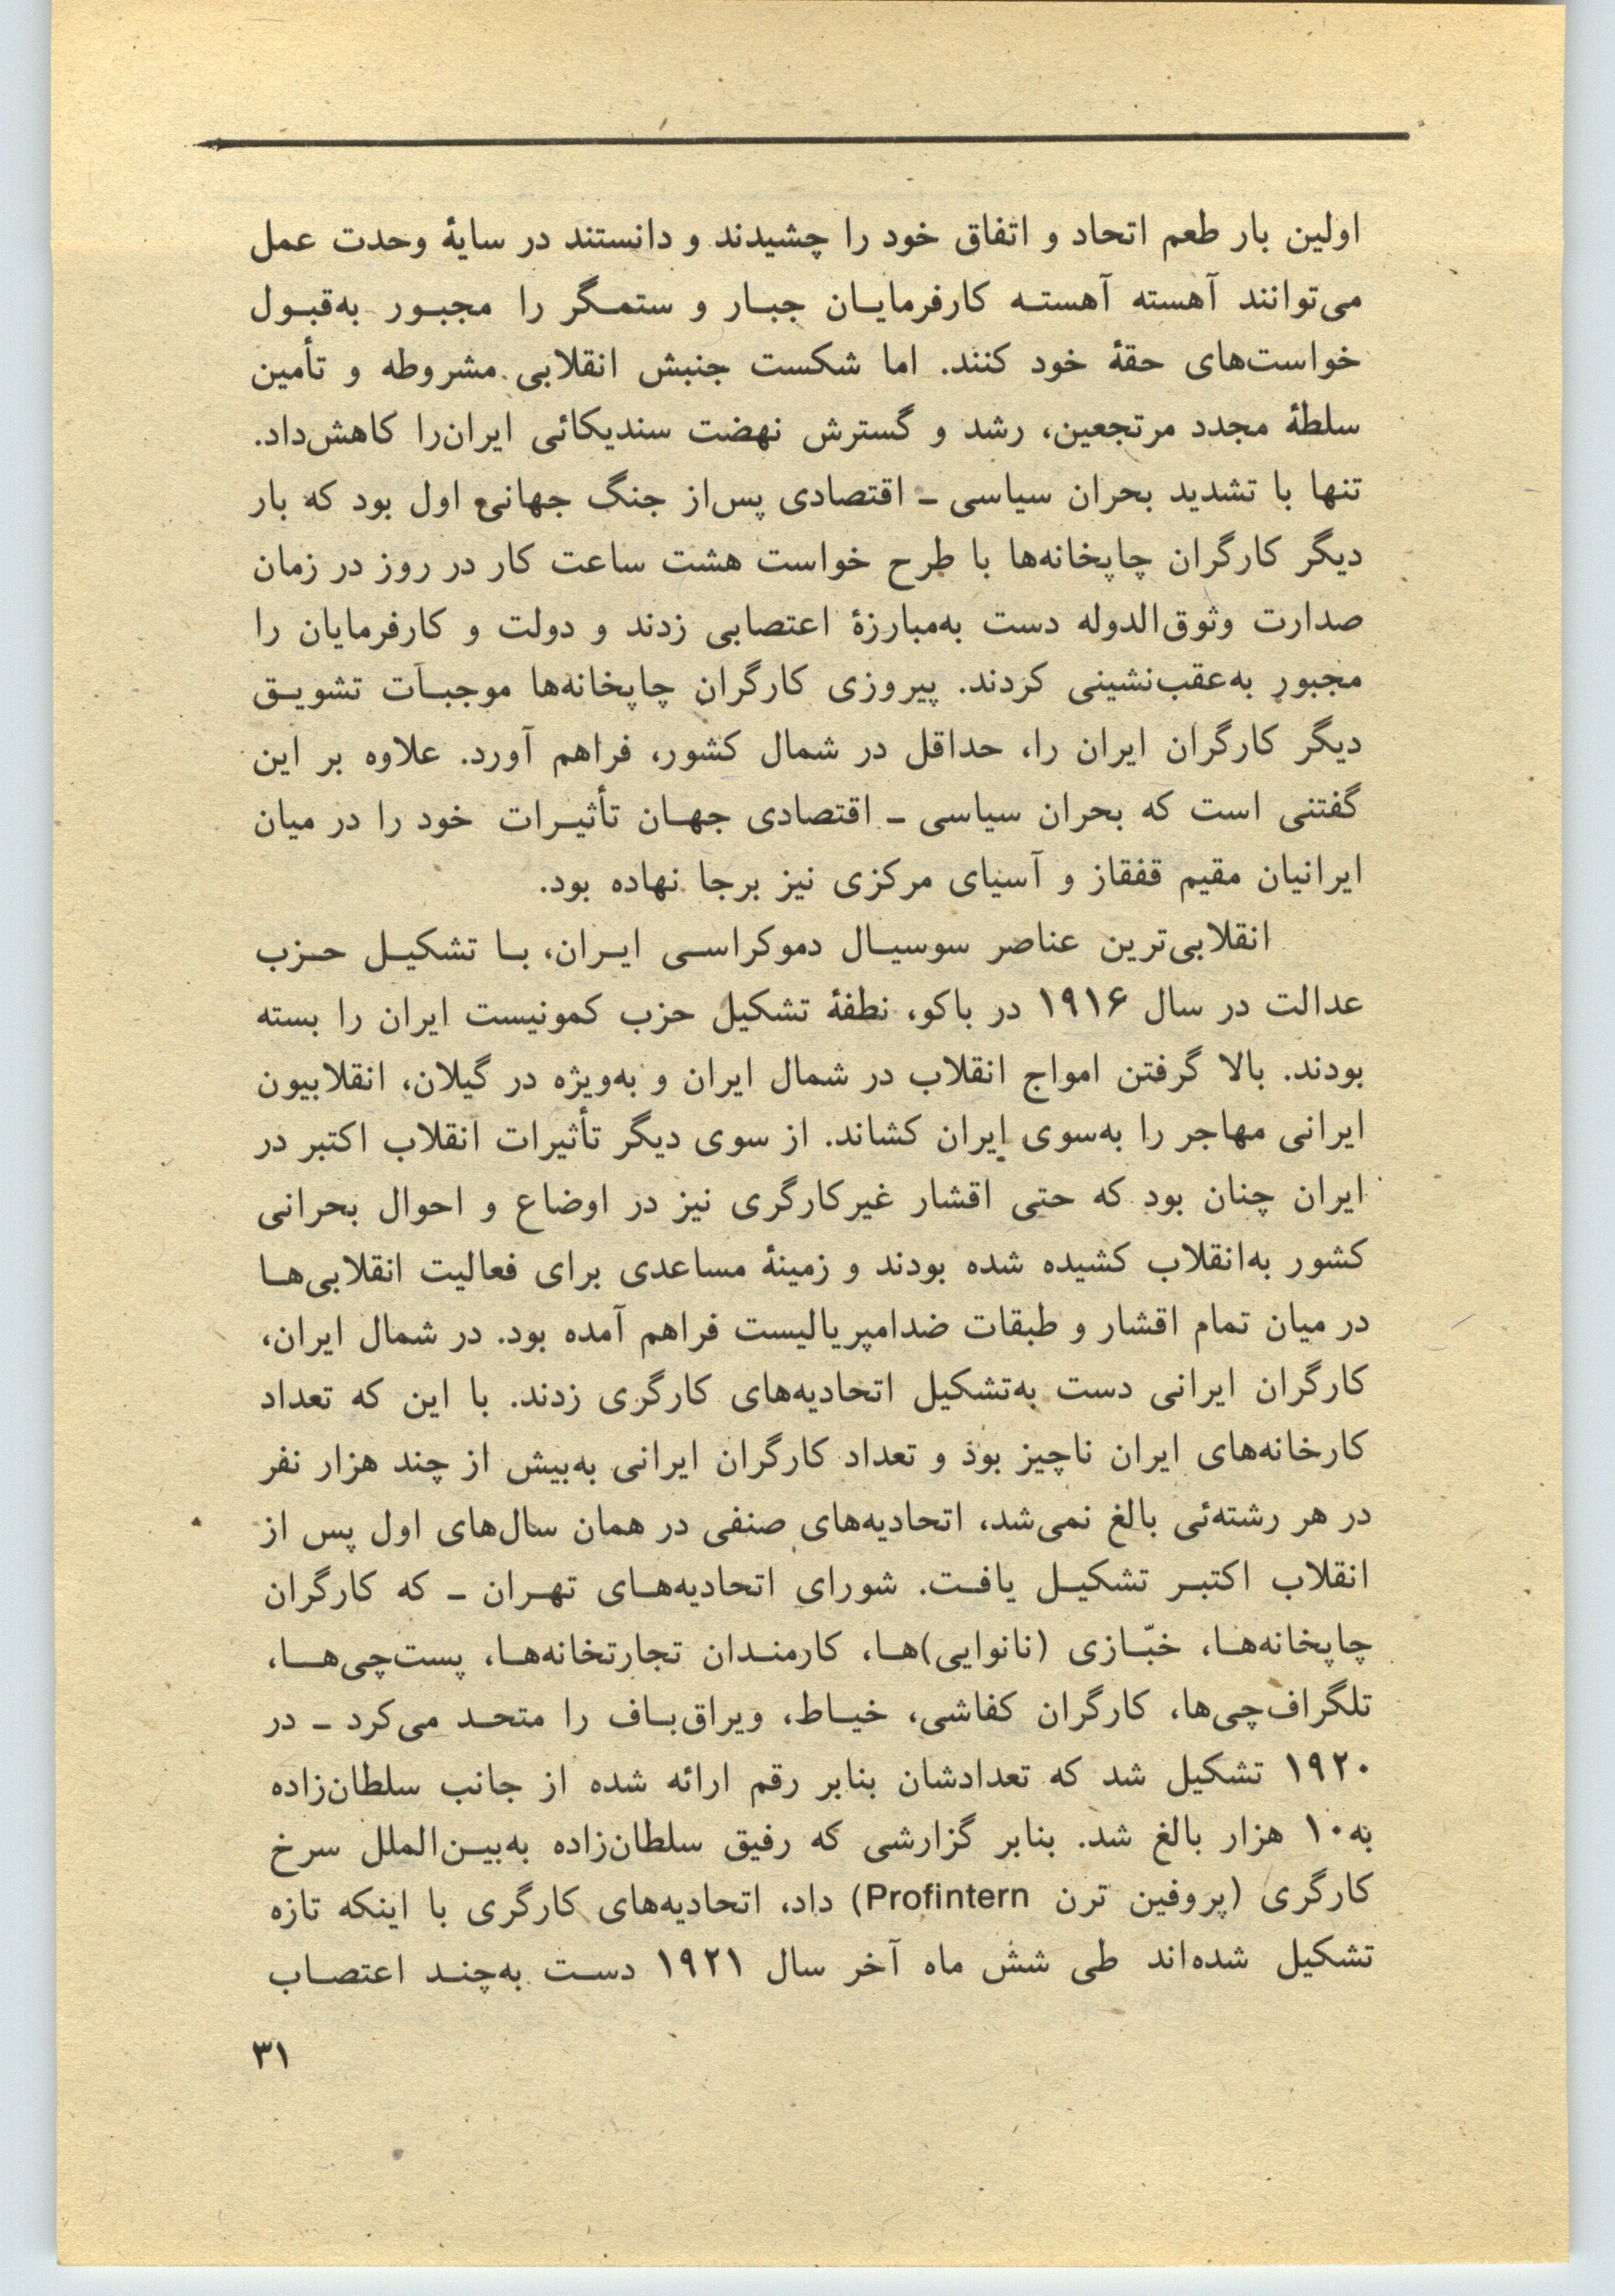 اولین بار طعم اتحاد و اتفاق خود را چشیدند و دانستند در سایهٔ وحدت عمل
می‌توانند آهسته آهسته کارفرمایان جبار و ستمگر را مجبور به‌قبول
خواست‌های حقهٔ خود کنند. اما شکست جنبش انقلابی مشروطه و تأمین
سلطهٔ مجدد مرتجعین، رشد و گسترش نهضت سندیکائی ایران‌را کاهش‌داد.
تنها با تشدید بحران سیاسی ـ اقتصادی پس‌از جنگ جهانی اول بود که بار
دیگر کارگران چاپخانه‌ها با طرح خواست هشت ساعت کار در روز در زمان
صدارت وثوق‌الدوله دست به‌مبارزهٔ اعتصابی زدند و دولت و کارفرمایان را
مجبور به‌عقب‌نشینی کردند. پیروزی کارگران چاپخانه‌ها موجبات تشویق
دیگر کارگران ایران را، حداقل در شمال کشور، فراهم آورد. علاوه بر این
گفتنی است که بحران سیاسی ـ اقتصادی جهان تأثیرات خود را در میان
ایرانیان مقیم قفقاز و آسیای مرکزی نیز برجا نهاده بود.
انقلابی‌ترین عناصر سوسیال دموکراسی ایران، با تشکیل حزب
عدالت در سال ۱۹۱۶ در باکو، نطفهٔ تشکیل حزب کمونیست ایران را بسته
بودند. بالا گرفتن امواج انقلاب در شمال ایران و به‌ویژه در گیلان، انقلابیون
ایرانی مهاجر را به‌سوی ایران کشاند. از سوی دیگر تأثیرات انقلاب اکتبر در
ایران چنان بود که حتی اقشار غیرکارگری نیز در اوضاع و احوال بحرانی
کشور به‌انقلاب کشیده شده بودند و زمینهٔ مساعدی برای فعالیت انقلابی‌ها
در میان تمام اقشار و طبقات ضدامپریالیست فراهم آمده بود. در شمال ایران،
کارگران ایرانی دست به‌تشکیل اتحادیه‌های کارگری زدند. با این که تعداد
کارخانه‌های ایران ناچیز بود و تعداد کارگران ایرانی به‌بیش از چند هزار نفر
در هر رشته‌ئی بالغ نمی‌شد، اتحادیه‌های صنفی در همان سال‌های اول پس از
انقلاب اکتبر تشکیل یافت. شورای اتحادیه‌های تهران ـ که کارگران
چاپخانه‌ها، خبّازی (نانوایی)ها، کارمندان تجارتخانه‌ها، پست‌چی‌ها،
تلگراف‌چی‌ها، کارگران کفاشی، خیاط، ویراق‌باف را متحد می‌کرد ـ در
۱۹۲۰ تشکیل شد که تعدادشان بنابر رقم ارائه شده از جانب سلطان‌زاده
به۱۰ هزار بالغ شد. بنابر گزارشی که رفیق سلطان‌زاده به‌بین‌الملل سرخ
کارگری (پروفین ترن Profintern) داد، اتحادیه‌های کارگری با اینکه تازه
تشکیل شده‌اند طی شش ماه آخر سال ۱۹۲۱ دست به‌چند اعتصاب
۳۱